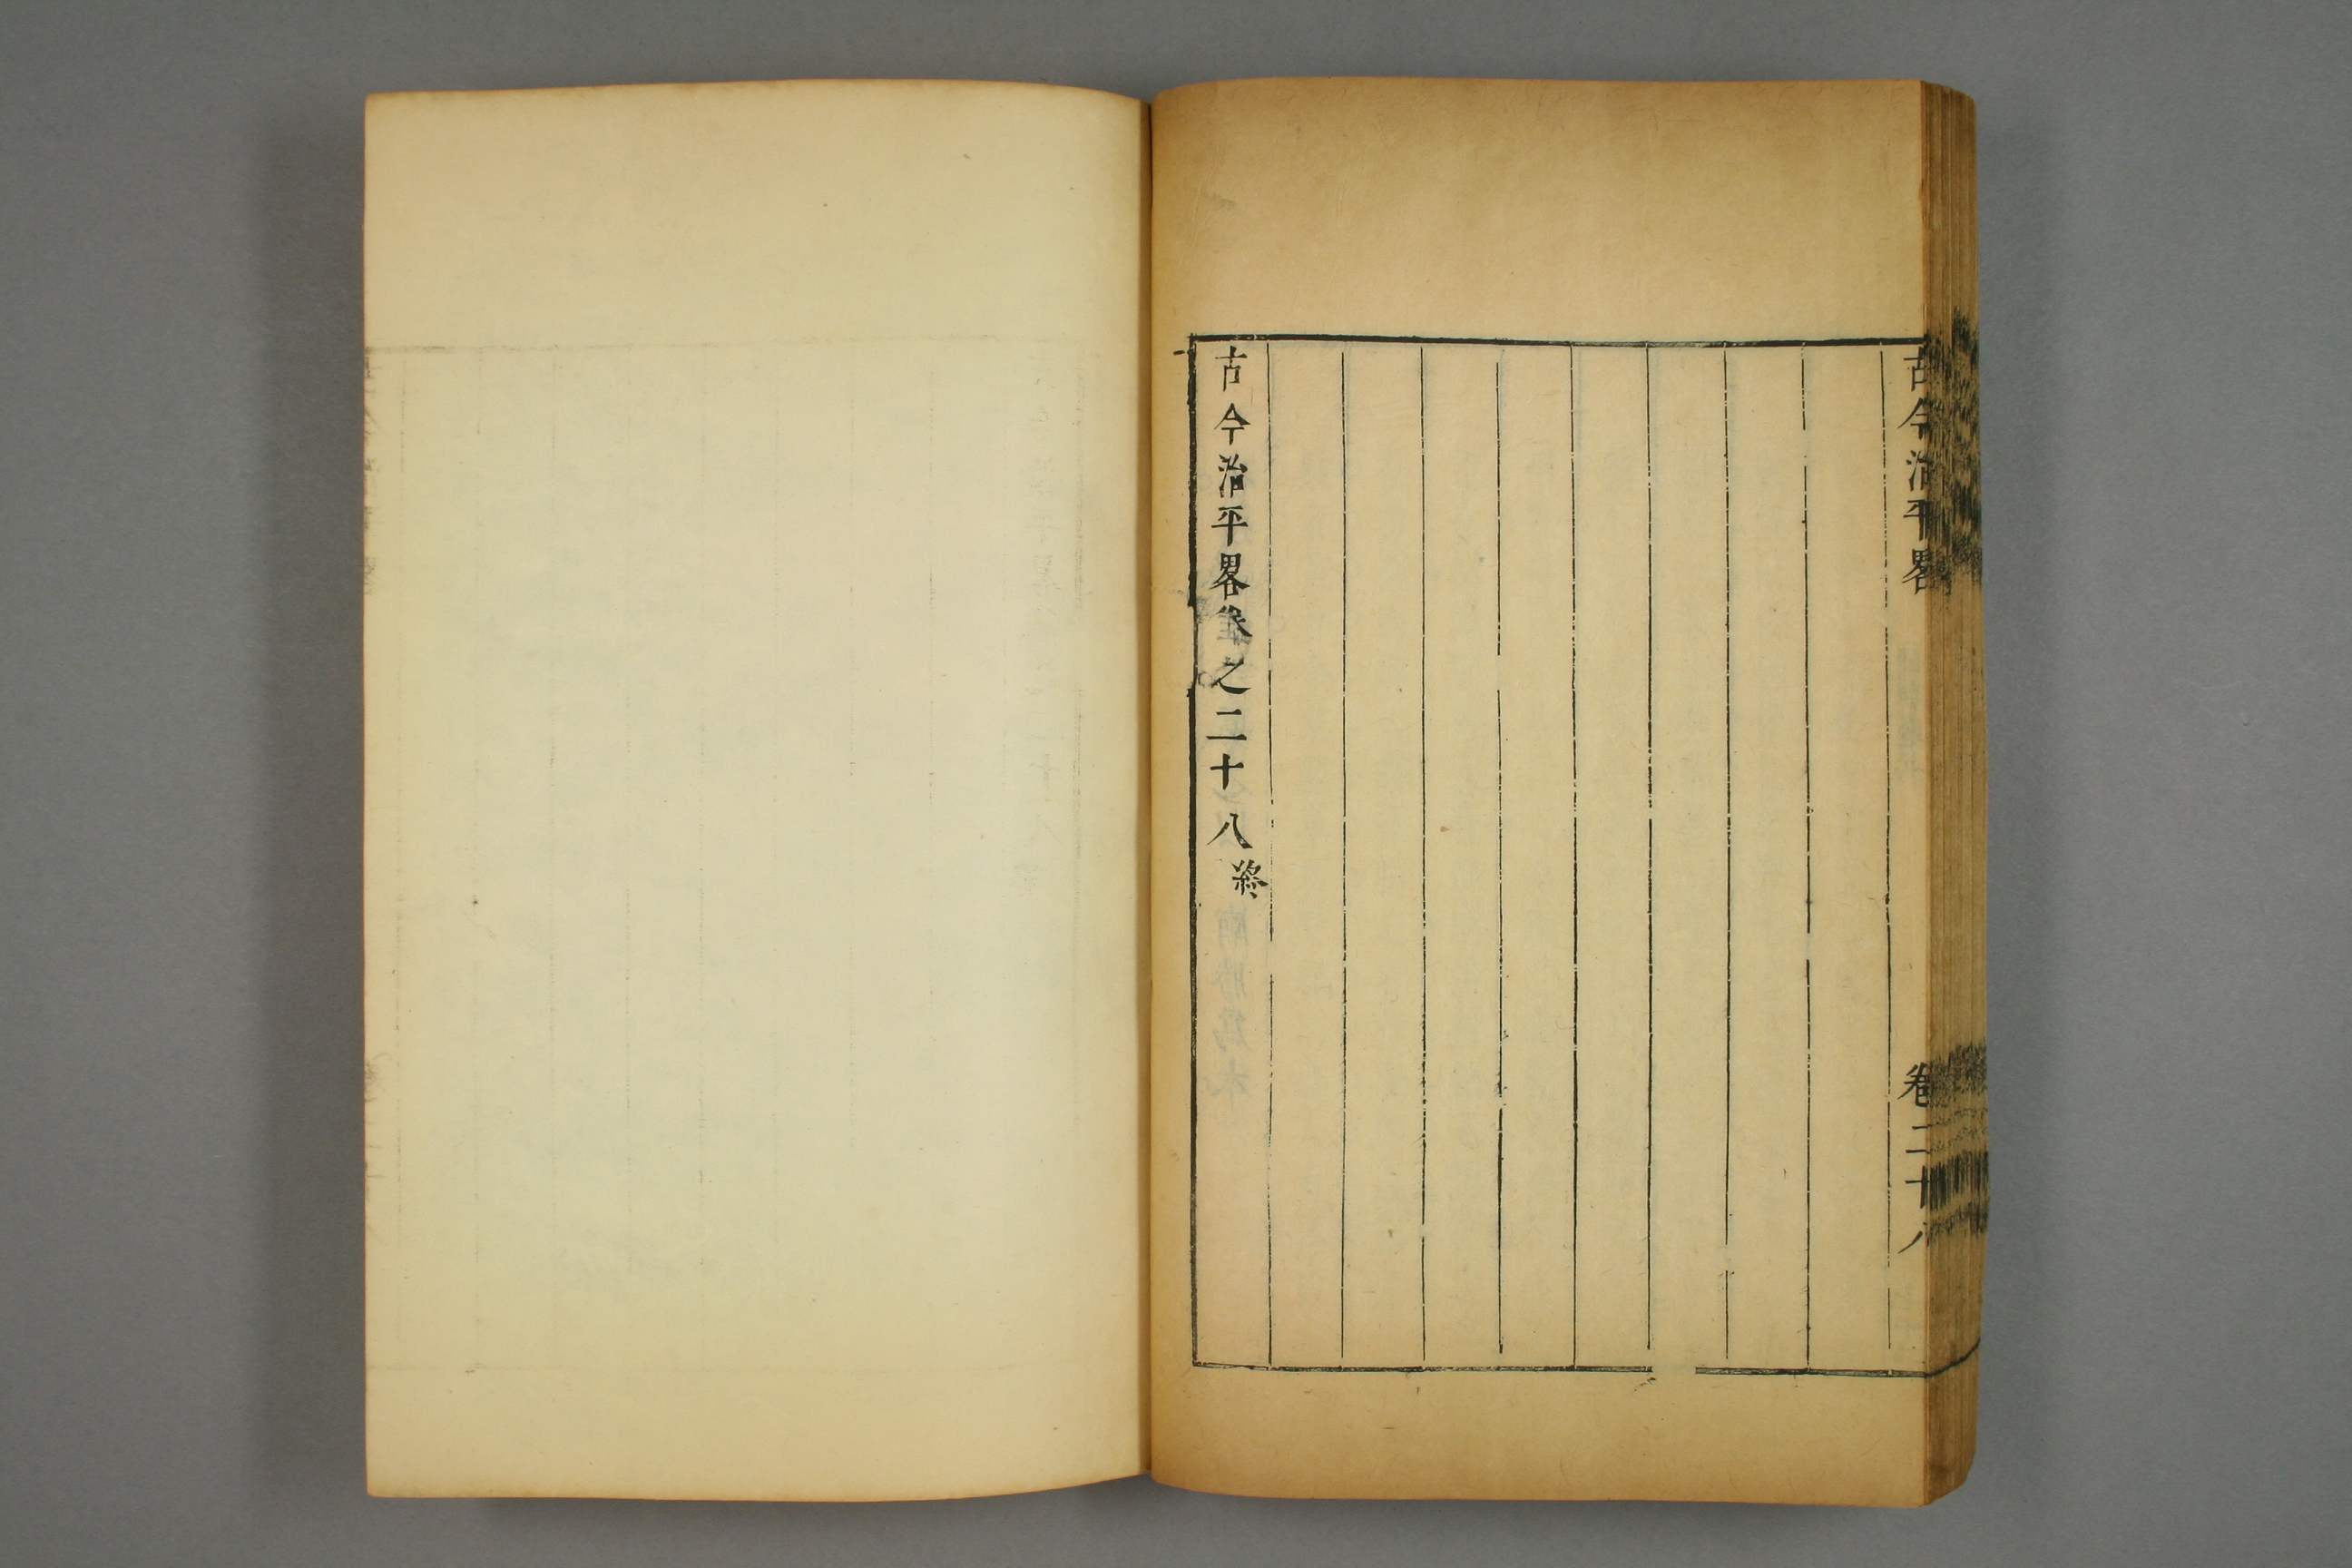 古今治平畧 卷二十八
古今治平畧卷之二十八終